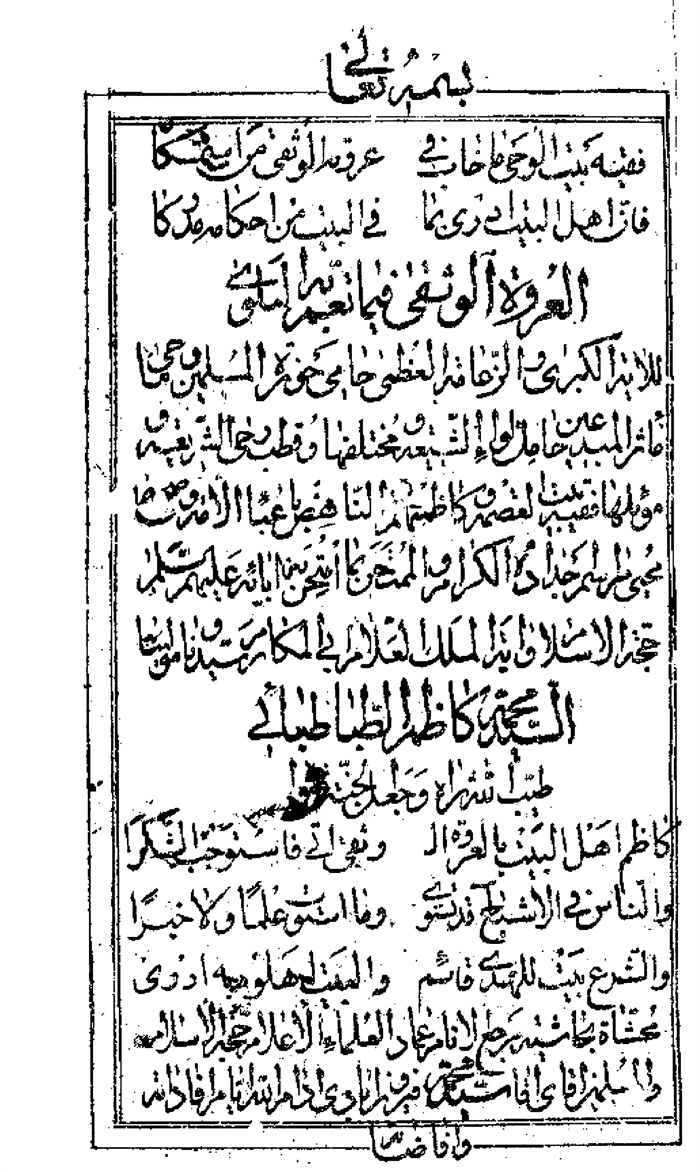 بسمه تعالی
فقیه بیت الوحی ما خاب فی عروته الوثقی من استمسکا
فان اهل البیت ادری بما فی البیت من احکامه مدرکا
العروة الوثقی فیما تعم به البلوی
للایة الکبری والزعامة العظمی حامی حوزة المسلمین وماحی
مأثر المبدعین حامل لواء الشیعة ومختلفها وقطب رحی الشریعة و
موئلها فقیه بیت العصمة وکاظمهم الناهض باعباء الامة
محیی مراسم اجداده الکرام والممتحن بما امتحن به ابائه علیهم سلم
حجة الاسلام وایة الملک العلام ابی المکارم سیدنا ومولینا
السید محمد کاظم الطباطبائی
طیب الله ثراه وجعل الجنة مثواه
کاظم اهل البیت بالعروة الـ وثقی اتی فاستوجب الشکرا
والناس فی الاشباح قد تستوی وما استوت علما ولا خبرا
والشرع بیت للهدی قائم والبیت اهلوه به ادری
محشاة بحاشیة مرجع الانام عماد العلماء الاعلام حجة الاسلام
والمسلمین اقای اقا سید محمد فیروزابادی ادام الله ایام افاداته
وافاضاته